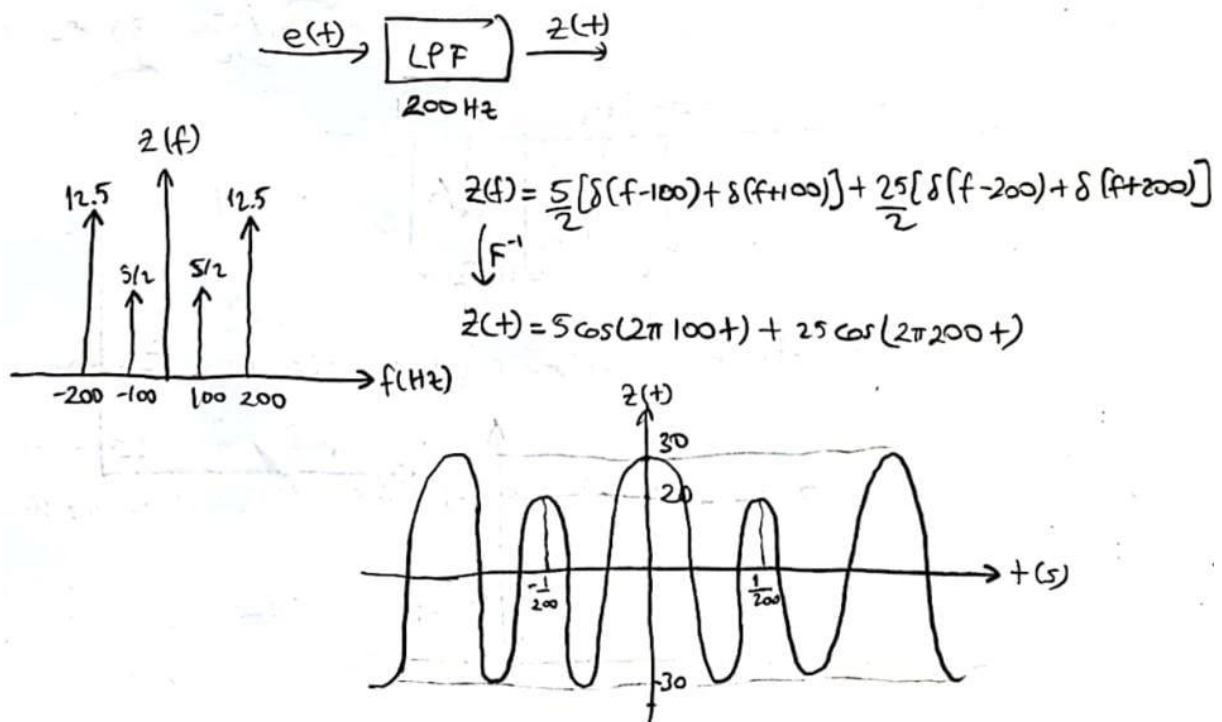 e(t)
LPF
z(t)
200 Hz
Z(f)
12.5
12.5
5/2
5/2
-200 -100 100 200
f(Hz)
Z(f) = 5/2 [δ(f-100) + δ(f+100)] + 25/2 [δ(f-200) + δ(f+200)]
F⁻¹
z(t) = 5 cos(2π 100t) + 25 cos(2π 200t)
z(t)
30
20
-1/200
1/200
t(s)
-30